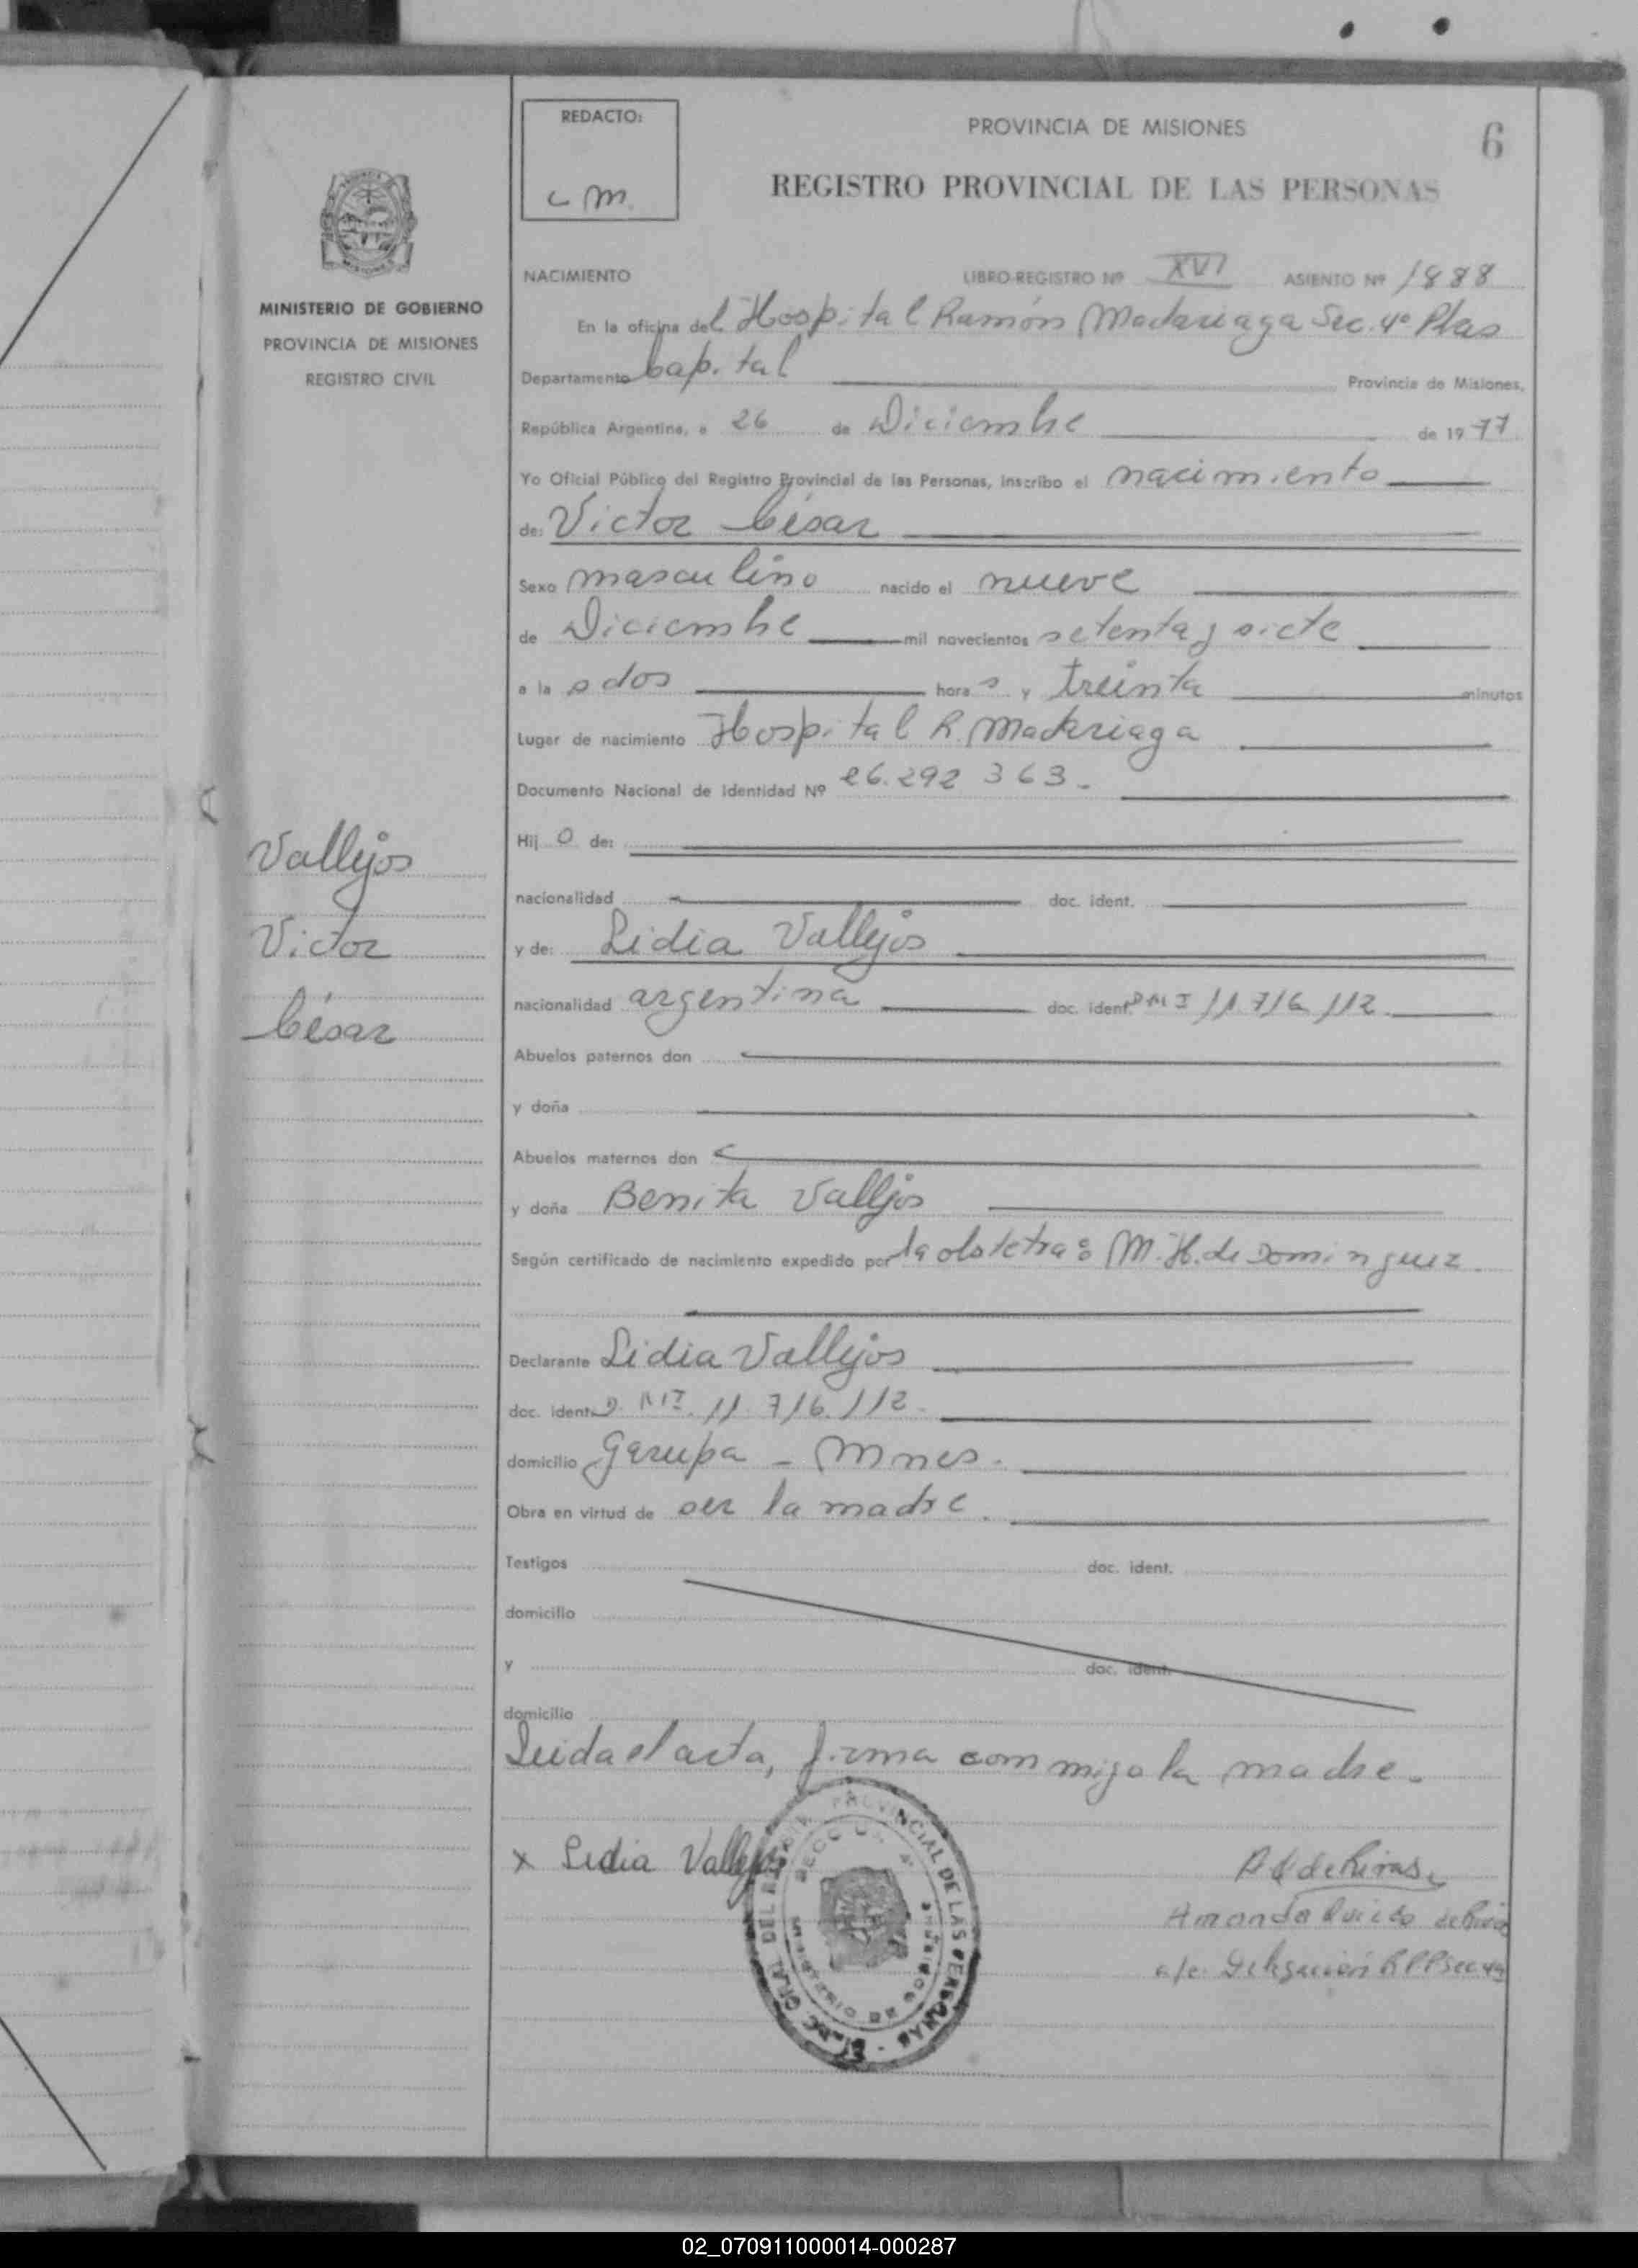 REDACTO:
C M.
PROVINCIA DE MISIONES
6
REGISTRO PROVINCIAL DE LAS PERSONAS
MINISTERIO DE GOBIERNO
PROVINCIA DE MISIONES
REGISTRO CIVIL
NACIMIENTO LIBRO-REGISTRO Nº XVI ASIENTO Nº 1888
En la oficina del Hospital Ramón Madariaga Sec. 4º Pdas
Departamento Capital Provincia de Misiones,
República Argentina, a 26 de Diciembre de 1977
Yo Oficial Público del Registro Provincial de las Personas, inscribo el nacimiento
de: Victor César
Sexo masculino nacido el nueve
de Diciembre mil novecientos setenta y siete
a la s dos hora s y treinta minutos
Lugar de nacimiento Hospital R. Madariaga
Documento Nacional de Identidad Nº 26.292 363.-
Hij o de:
nacionalidad doc. ident.
y de: Lidia Vallejos
nacionalidad argentina doc. ident. DNI 11.716.112
Abuelos paternos don
y doña
Abuelos maternos don
y doña Benita Vallejos
Según certificado de nacimiento expedido por la obstetra: M.H. de Dominguez
Declarante Lidia Vallejos
doc. ident. D.NI. 11.716.112.
domicilio Garupa - Mnes.
Obra en virtud de ser la madre.
Testigos doc. ident.
domicilio
y doc. ident.
domicilio
Leida el acta, firma conmigo la madre.-
x Lidia Vallejos
Vallejos
Victor
César
PROVINCIAL DE LAS PERSONAS
MINISTERIO DE GOBIERNO
Amanda de Rivas
a/c. Delegación R.P.P. Sec 4º
02_070911000014-000287